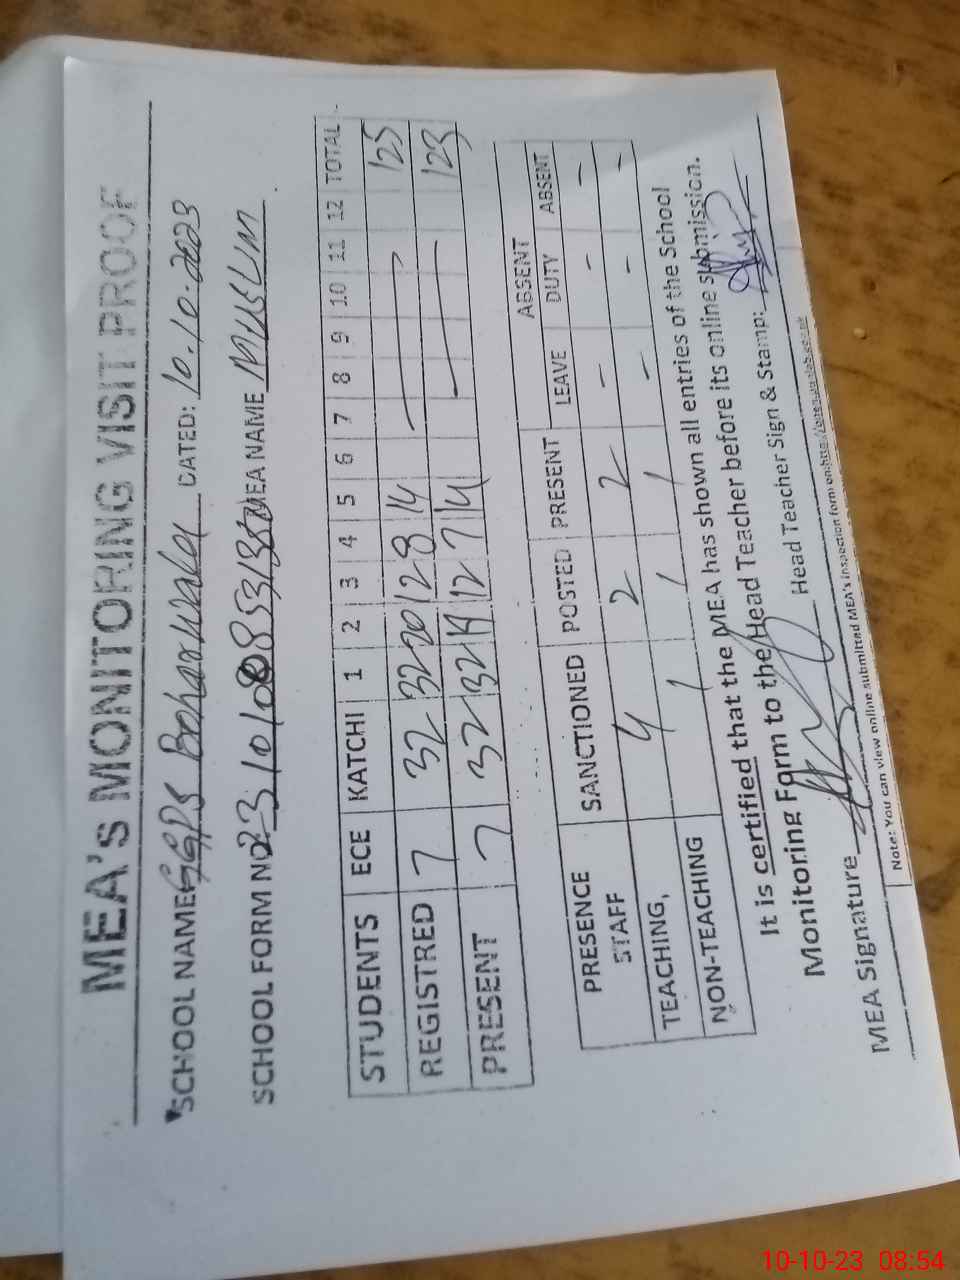 MEA's MONITORING VISIT PROOF
SCHOOL NAME: GGPS DATED: 10.10.2023
SCHOOL FORM NO: MEA NAME MUSLIM
STUDENTS ECE KATCHI 1 2 3 4 5 6 7 8 9 10 11 12 TOTAL
REGISTRED 7 32 32 20 12 8 14 125
PRESENT 7 32 32 19 12 7 14 123
ABSENT
PRESENCE SANCTIONED POSTED PRESENT LEAVE DUTY ABSENT
STAFF
TEACHING, 4 2 2 - - -
NON-TEACHING 1 1 1 - - -
It is certified that the MEA has shown all entries of the School
Monitoring Form to the Head Teacher before its online submission.
MEA Signature Head Teacher Sign & Stamp:
Note: You can view online submitted MEA's inspection form on:
10-10-23 08:54